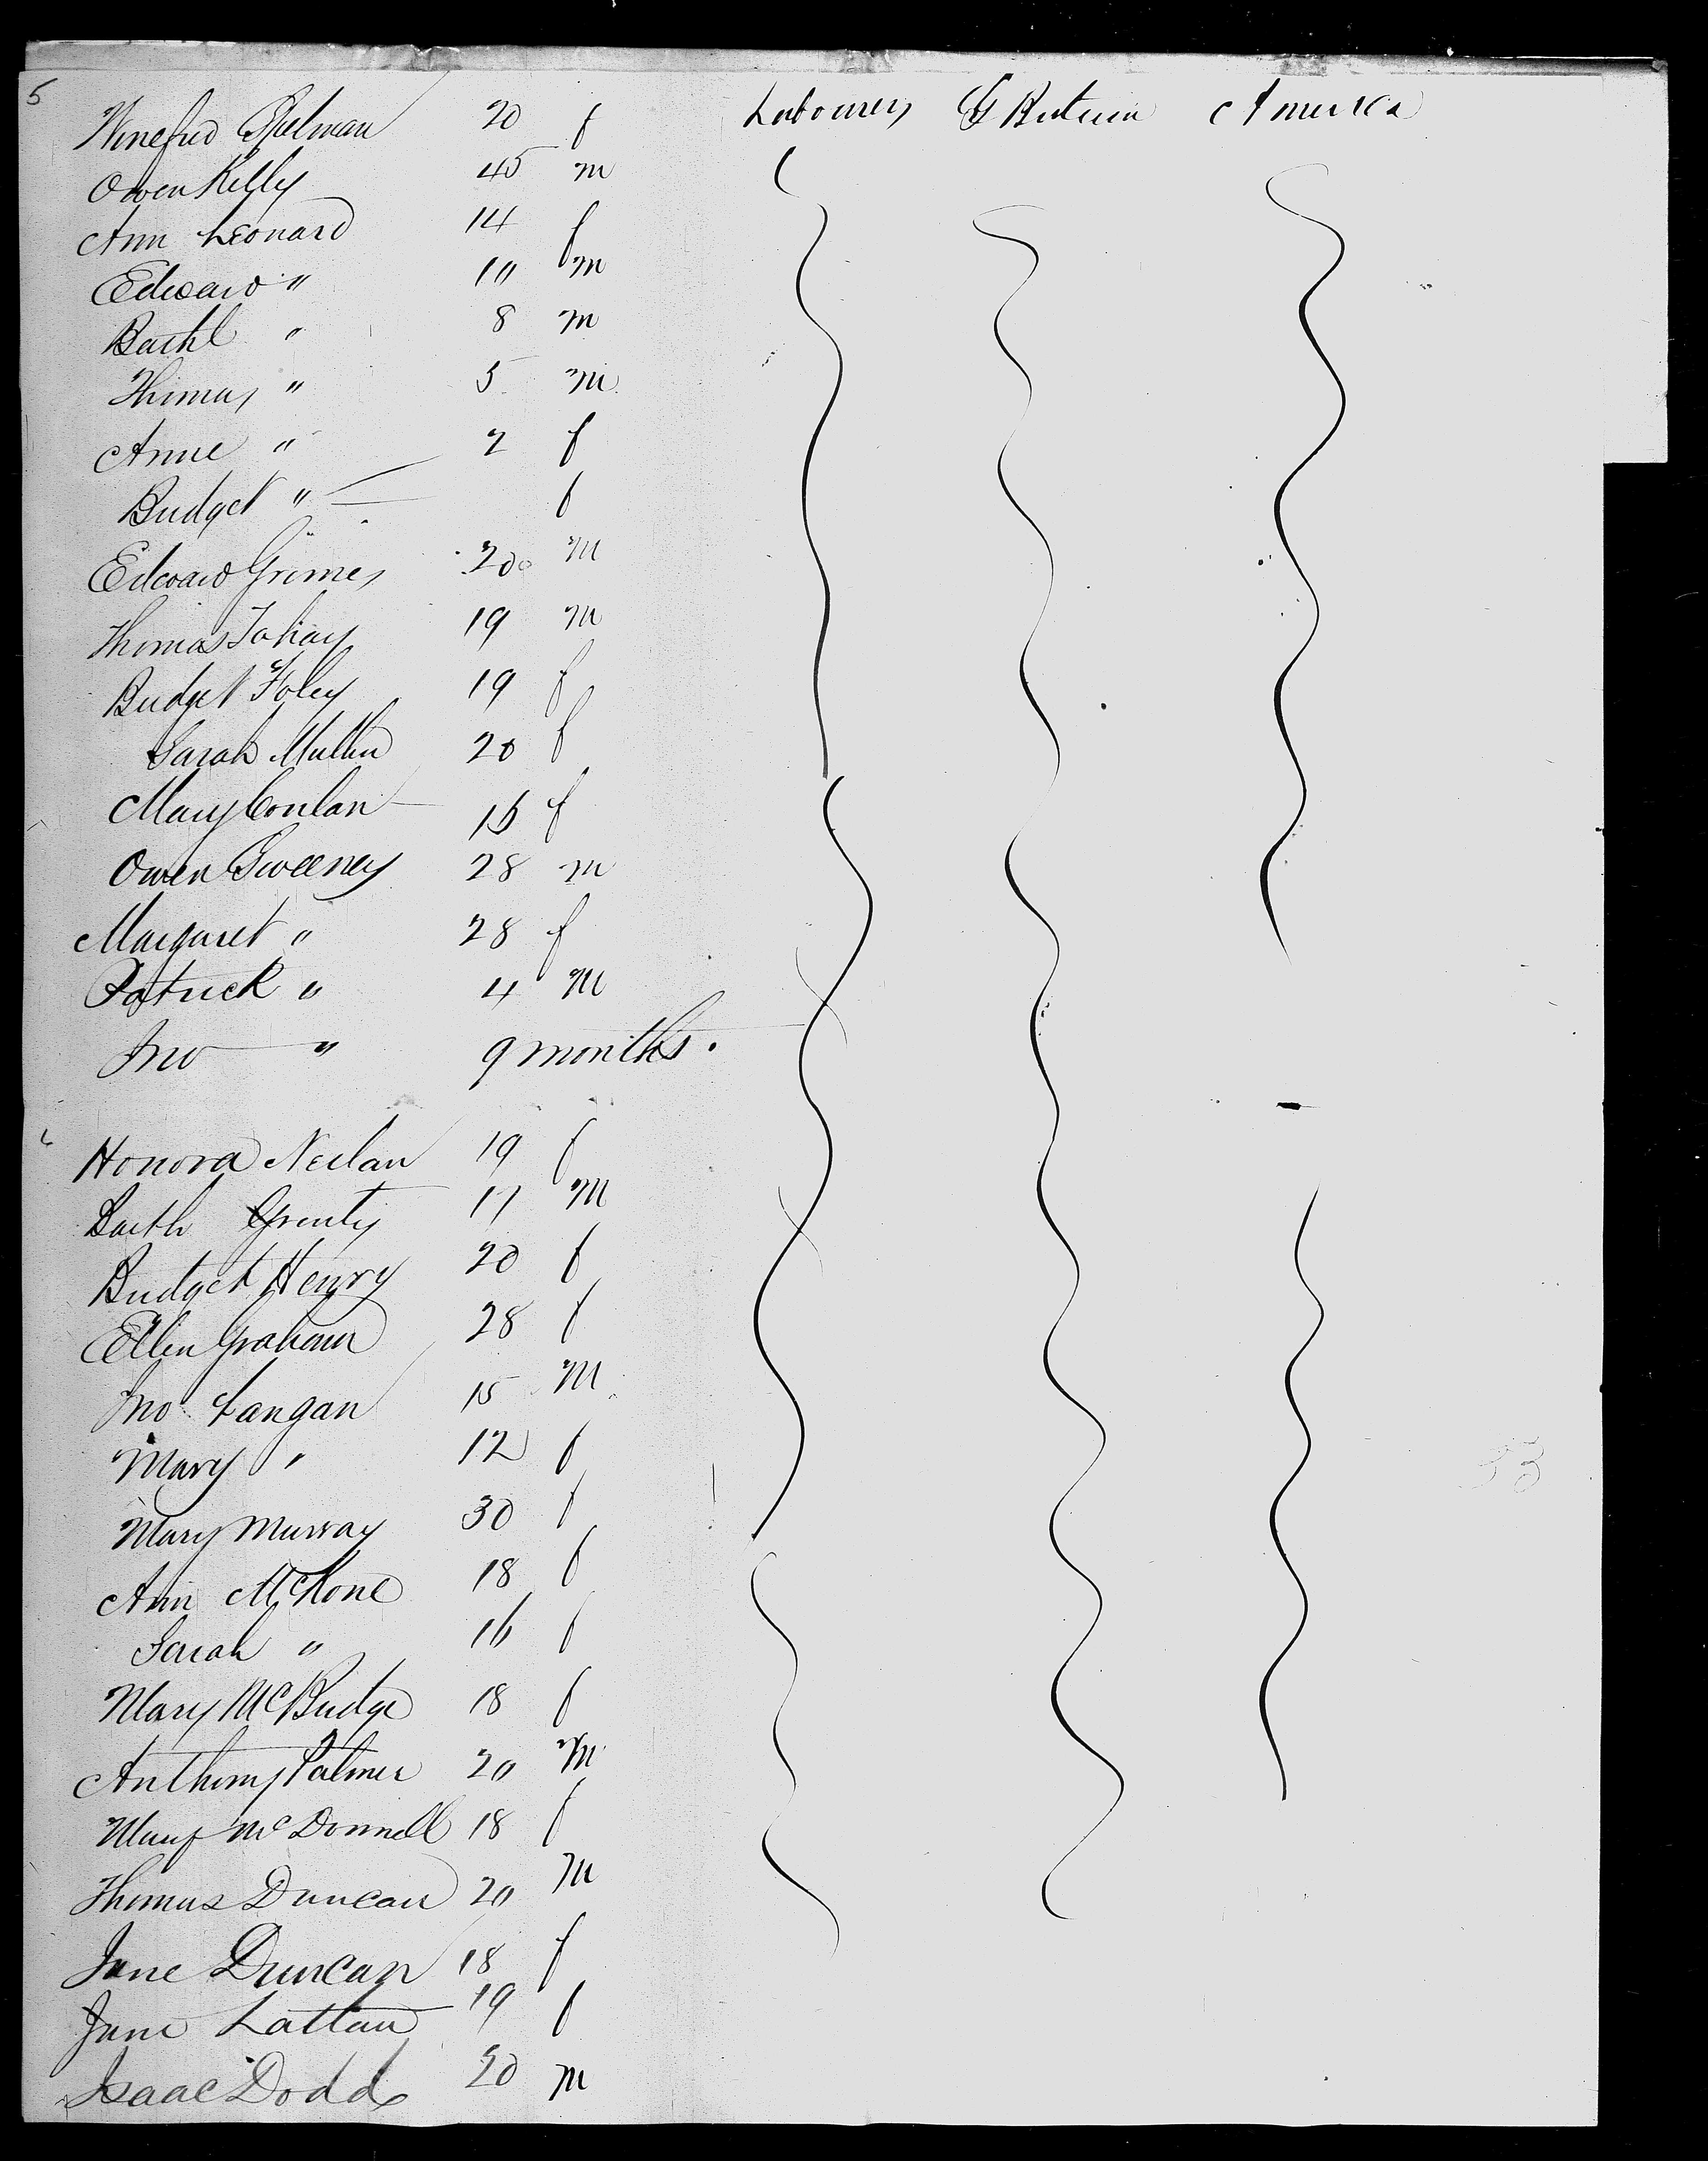 5
Winefred Spelman 20 f Labourers Gt Britain America
Owen Kelly 45 m
Ann Leonard 14 f
Edward " 10 m
Barthl " 8 m
Thomas " 5 m
Anne " 2 f
Bridget " f
Edward Grimes 20 m
Thomas Tahay 19 m
Bridget Foley 19 f
Sarah Mullin 20 f
Mary Conlan 16 f
Owen Sweeney 28 m
Margaret " 28 f
Patrick " 4 m
Jno " 9 months.
Honora Neilan 19 f
Barth 17 m
Bridget Henry 20 f
Ellen Graham 28 f
Jno Langan 15 m
Mary " 12 f
Mary Murray 30 f
Ann McKone 18 f
Sarah " 16 f
Mary McBridge 18 f
Anthony Palmer 20 m
Mary McDonnell 18 f
Thomas Duncan 20 m
Jane Duncan 18 f
Jane Lattan 19 f
Isaac Dodds 20 m
53